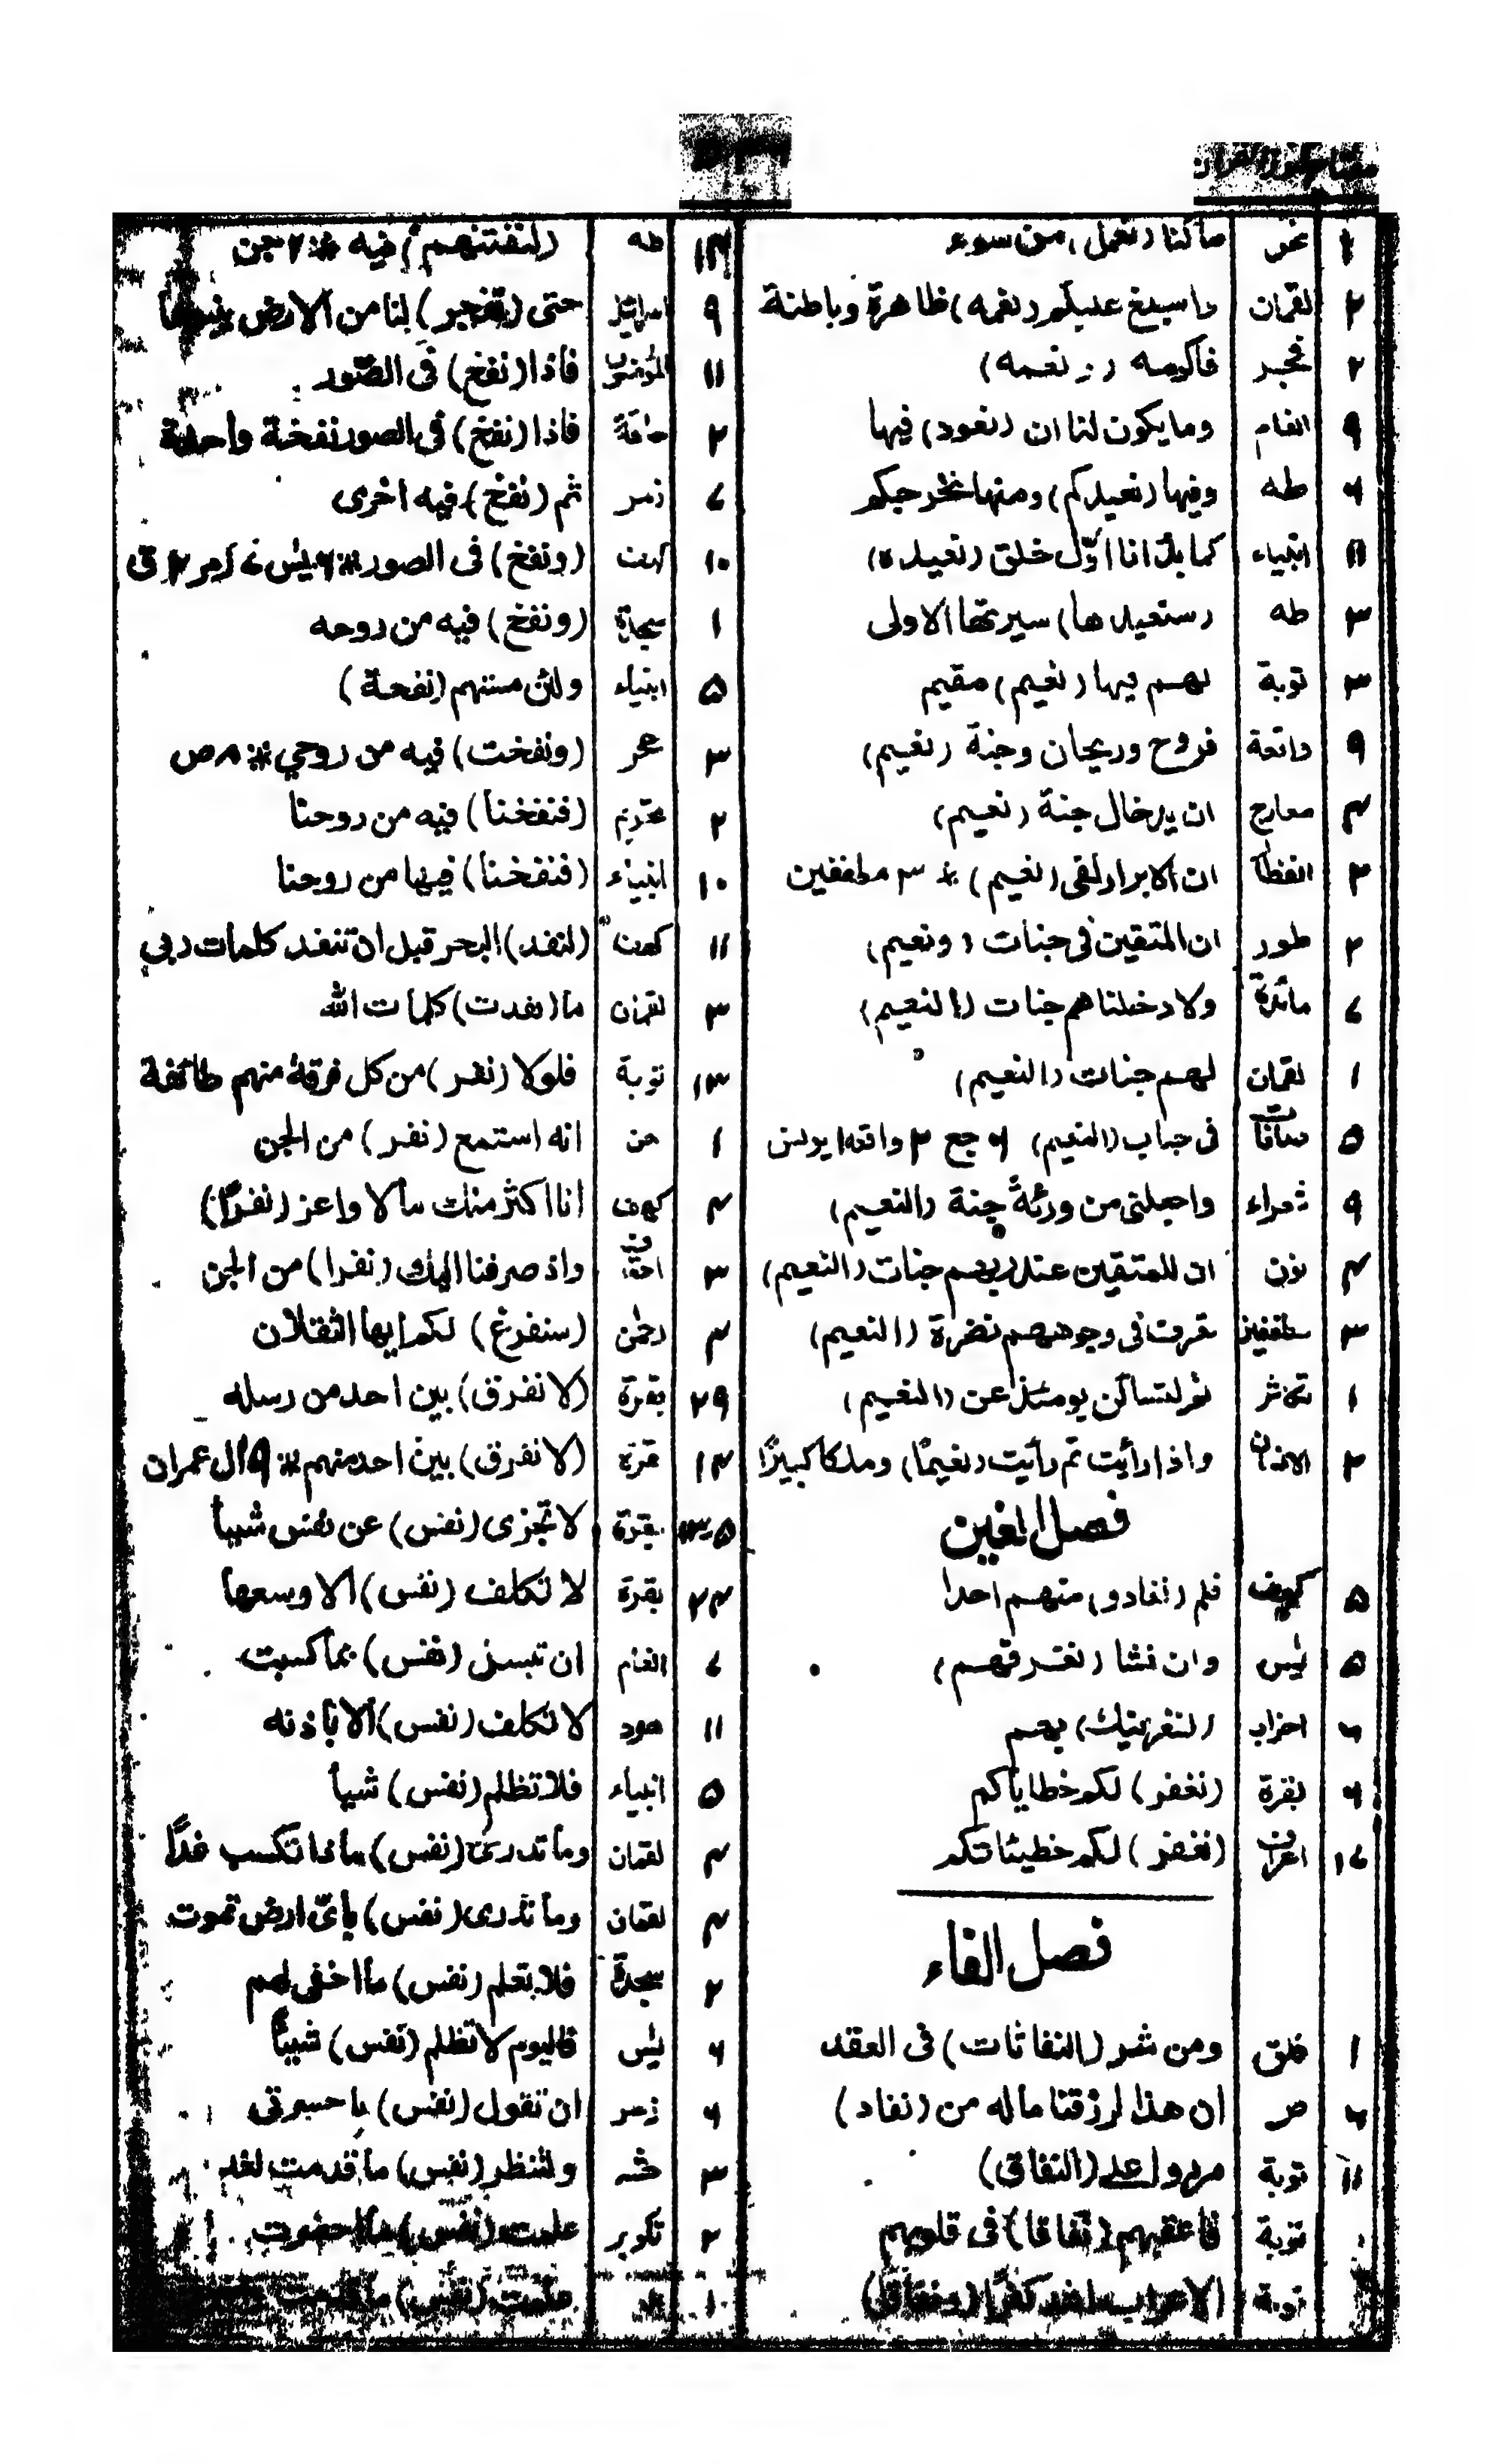 ۲ نحل ماکنا (نعمل) من سوء
۲ لقمان واسبغ علیکم (نعمه) ظاهرة وباطنة
۲ فجر فاکرمه (ونعمه)
۹ انعام ومایکون لنا ان (نعود) فیها
طه وفیها (نعیدکم) ومنها نخرجکم
انبیاء کما بدانا اوّل خلق (نعیده)
۳ طه (سنعیدها) سیرتها الاولی
۳ توبة لهم فیها (نعیم) مقیم
۹ واقعة فروح وریحان وجنة (نعیم)
معارج ان یدخل جنة (نعیم)
ان الابرار لفی (نعیم) * ۳ مطففین
۲ طور ان المتقین فی جنات (ونعیم)
مائدة ولادخلناهم جنات (النعیم)
۱ لقمان لهم جنات (النعیم)
۵ صافات فی جنات (النعیم)
۹ شعراء واجعلنی من ورثة جنة (النعیم)
نون ان للمتقین عند ربهم جنات (النعیم)
۳ مطففین تعرف فی وجوههم نضرة (النعیم)
۱ تکاثر ثم لتسالن یومئذ عن (النعیم)
۲ واذا رأیت ثم رأیت (نعیمًا) وملکا کبیرًا
فصل الغین
۵ کهف فلم (نغادر) منهم احدا
یٰس وان نشا (نغرقهم)
احزاب (لنغرینک) بهم
بقرة (نغفر) لکم خطایاکم
اعراف (نغفر) لکم خطیئاتکم
فصل الفاء
۱ فلق ومن شر (النفاثات) فی العقد
ص ان هذا لرزقنا ماله من (نفاد)
۱۱ توبة مردوا علی (النفاق)
توبة فاعقبهم (نفاقا) فی قلوبهم
توبة الاعراب اشد کفرًا (ونفاقا)
طه (لنفتنهم) فیه * ۲ جن
۹ حتی (تفجر) لنا من الارض
۱۱ المؤمنون فاذا (نفخ) فی الصّور
۲ حاقة فاذا (نفخ) فی الصور نفخة واحدة
زمر ثم (نفخ) فیه اخری
۱۰ کهف (ونفخ) فی الصور
۱ سجدة (ونفخ) فیه من روحه
انبیاء ولئن مستهم (نفحة)
۳ حجر (ونفخت) فیه من روحی * ص
۲ تحریم (فنفخنا) فیه من روحنا
۱۰ انبیاء (فنفخنا) فیها من روحنا
۱۱ کهف (لنفد) البحر قبل ان تنفد کلمات ربی
۳ لقمان ما (نفدت) کلمات الله
۱۳ توبة فلولا (نفر) من کل فرقة منهم طائفة
۱ جن انه استمع (نفر) من الجن
کهف انا اکثر منک مالا واعز (نفرًا)
۳ احقاف واذ صرفنا الیک (نفرا) من الجن
رحمٰن (سنفرغ) لکم ایها الثقلان
۲۹ بقرة (لا نفرق) بین احد من رسله
بقرة (لا نفرق) بین احد منهم * ۹ ال عمران
بقرة لا تجزی (نفس) عن نفس شیئا
بقرة لا تکلف (نفس) الا وسعها
انعام ان تبسل (نفس) بما کسبت
۱۱ هود لا تکلم (نفس) الا باذنه
۵ انبیاء فلا تظلم (نفس) شیأ
لقمان وما تدری (نفس) ماذا تکسب غدًا
لقمان وما تدری (نفس) بأیّ ارض تموت
۲ سجدة فلا تعلم (نفس) ما اخفی لهم
یٰس فالیوم لا تظلم (نفس) شیئًا
زمر ان تقول (نفس) یا حسرتی
۳ حشر ولتنظر (نفس) ما قدمت لغد
۲ تکویر علمت (نفس) ما احضرت
علمت (نفس) ما قدمت